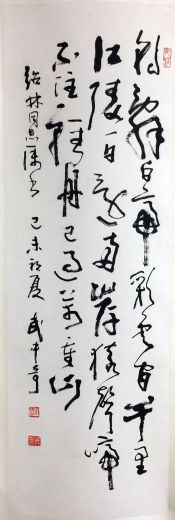 朝辞白帝彩云间千里
江陵一日还两岸猿声啼
不住轻舟已过万重山
绍林同志属书 己未初夏 武中奇